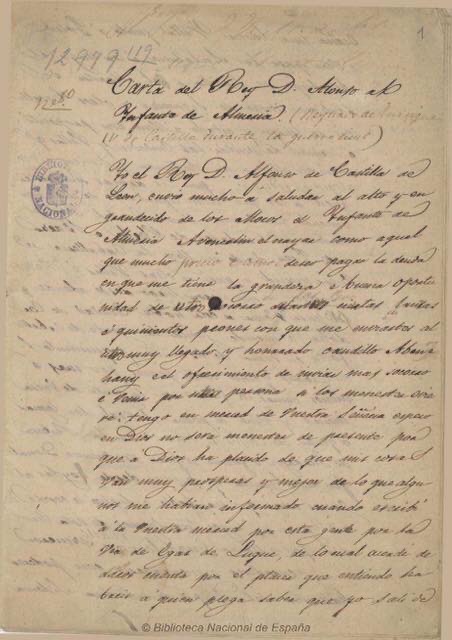 12979/19
1
Carta del Rey D. Alonso al
Infante de Almeria. (Reynado de Enrique
IV de Castilla durante la guerra civil)
Yo el Rey D. Alfonso de Castilla de
Leon, envio mucho á saludar al alto y en
grandecido de los Moros el Infante de
Almeria como aquel
que mucho precio e amo deseo pagar la deuda
en que me tiene la grandeza é buena oportu
nidad de socorro
é quinientos peones con que me enviastes al
muy llegado y honrado caudillo Aben
el ofrecimiento de enviar mas socorro
é venir por persona si los menester ovie
re. tengo en merced de vuestra Señoria espero
en Dios no será menester de presente pues
que á Dios ha placido de que mis cosas
van muy prosperas y mejor de lo que algu
nos me habian informado cuando escribí
á la vuestra merced por esta gente por la
Via de Egas de Luque, de lo cual acorde de
dar cuenta por el placer que entiendo ha
breis á quien plega saber que yo sali de
BIBLIOTECA NACIONAL
© Biblioteca Nacional de España